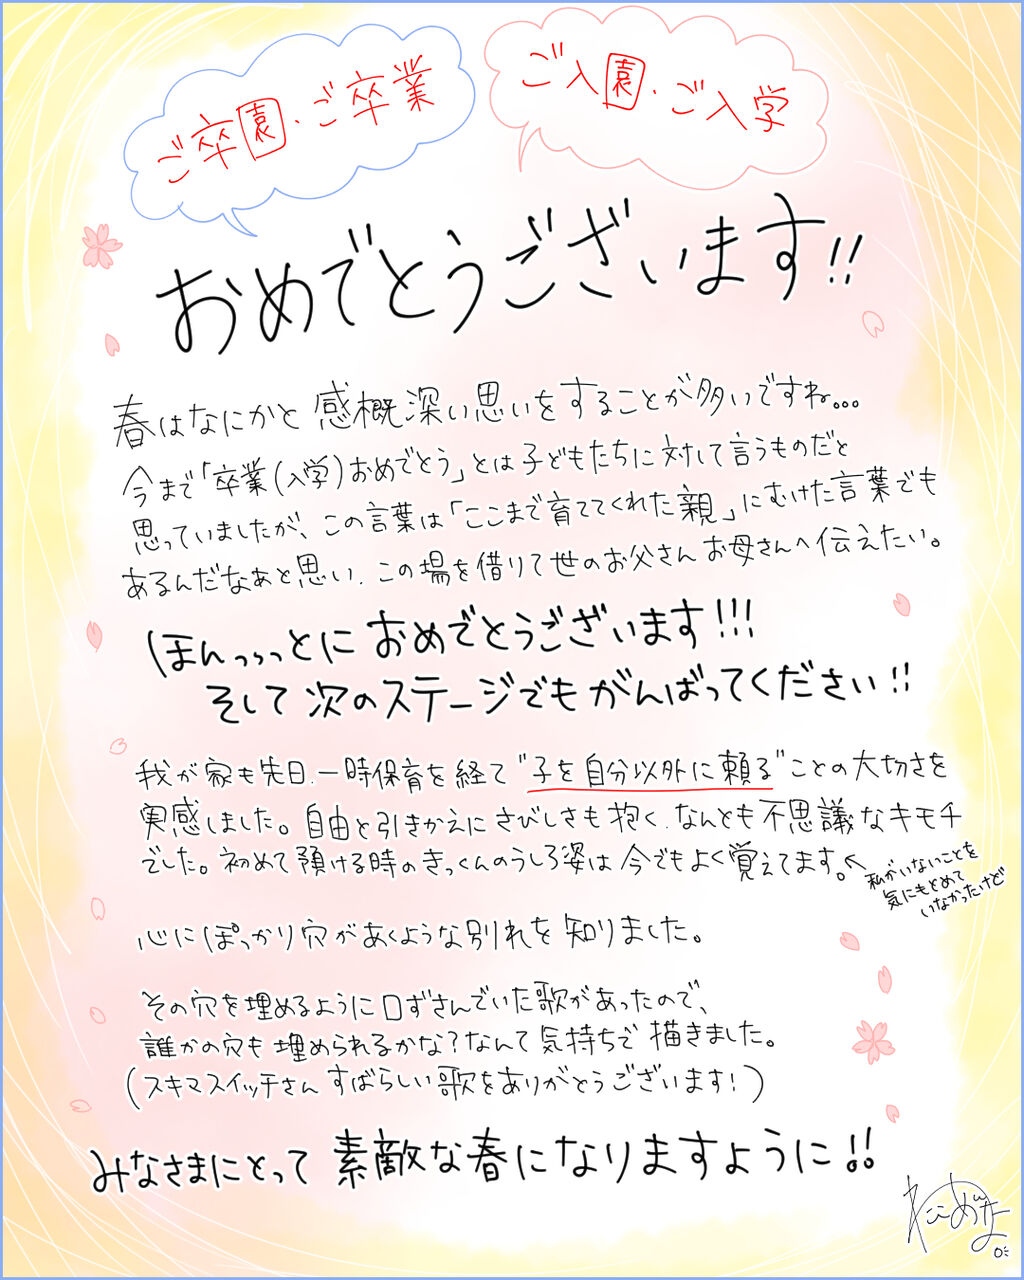 ご卒園・ご卒業
ご入園・ご入学
おめでとうございます!!
春はなにかと感慨深い思いをすることが多いですね...
今まで「卒業(入学)おめでとう」とは子どもたちに対して言うものだと
思っていましたが、この言葉は「ここまで育ててくれた親」にむけた言葉でも
あるんだなぁと思い、この場を借りて世のお父さんお母さんへ伝えたい。
ほんっっっとにおめでとうございます!!!
そして次のステージでもがんばってください!!
我が家も先日、一時保育を経て"子を自分以外に頼る"ことの大切さを
実感しました。自由と引きかえにさびしさも抱く、なんとも不思議なキモチ
でした。初めて預ける時のきっくんのうしろ姿は今でもよく覚えてます。
私がいないことを
気にもとめて
いなかったけど
心にぽっかり穴があくような別れを知りました。
その穴を埋めるように口ずさんでいた歌があったので、
誰かの穴も埋められるかな?なんて気持ちで描きました。
(スキマスイッチさんすばらしい歌をありがとうございます!)
みなさまにとって素敵な春になりますように!!